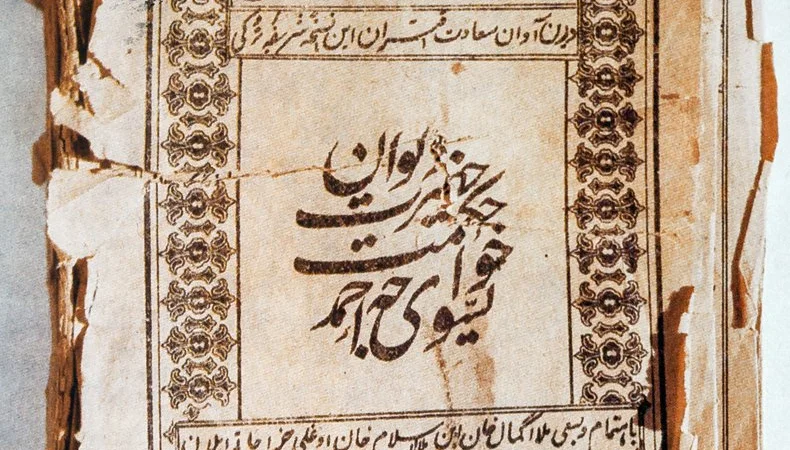 درین آوان سعادت اقتران این نسخه شریفه ترکی
دیوان
حضرت
حکمت
خواجه احمد
یسوی
باهتمام و بسعی ملا خان ابن اسلام خان اوغلی